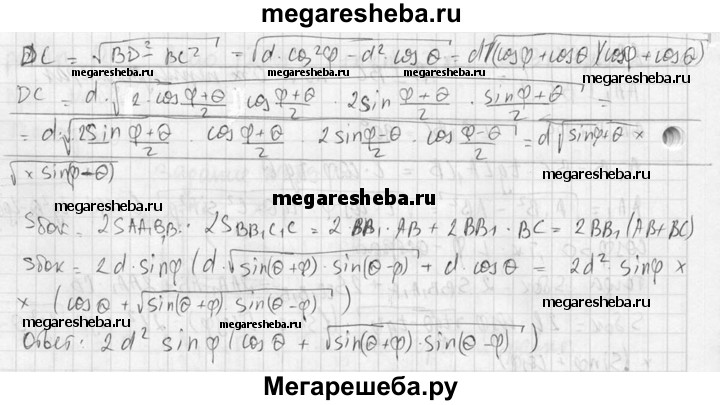 megaresheba.ru
DC = √(BD² - BC²) = √(d · cos²φ - d² · cos θ) = d√((cosφ + cosθ)(cosφ + cosθ))
megaresheba.ru megaresheba.ru megaresheba.ru
megaresheba.ru
DC = d · √(2 · cos (φ+θ)/2 · cos (φ+θ)/2 · 2sin (φ+θ)/2 · sin (φ+θ)/2) =
= d · √(2sin (φ+θ)/2 · cos (φ+θ)/2 · 2sin (φ-θ)/2 · cos (φ-θ)/2) = d√(sinφ+θ ×
√(× sin(φ-θ))
megaresheba.ru megaresheba.ru megaresheba.ru
Sбок = 2SAA₁B₁B · 2SBB₁C₁C = 2 BB₁ · AB + 2BB₁ · BC = 2BB₁(AB+BC)
Sбок = 2d · sinφ (d · √(sin(θ+φ) · sin(θ-φ)) + d cosθ = 2d² sinφ ×
megaresheba.ru
× (cosθ + √(sin(θ+φ) sin(θ-φ)))
megaresheba.ru megaresheba.ru megaresheba.ru
Ответ: 2d² sinφ (cosθ + √(sin(θ+φ) · sin(θ-φ)))
Мегарешеба.ру